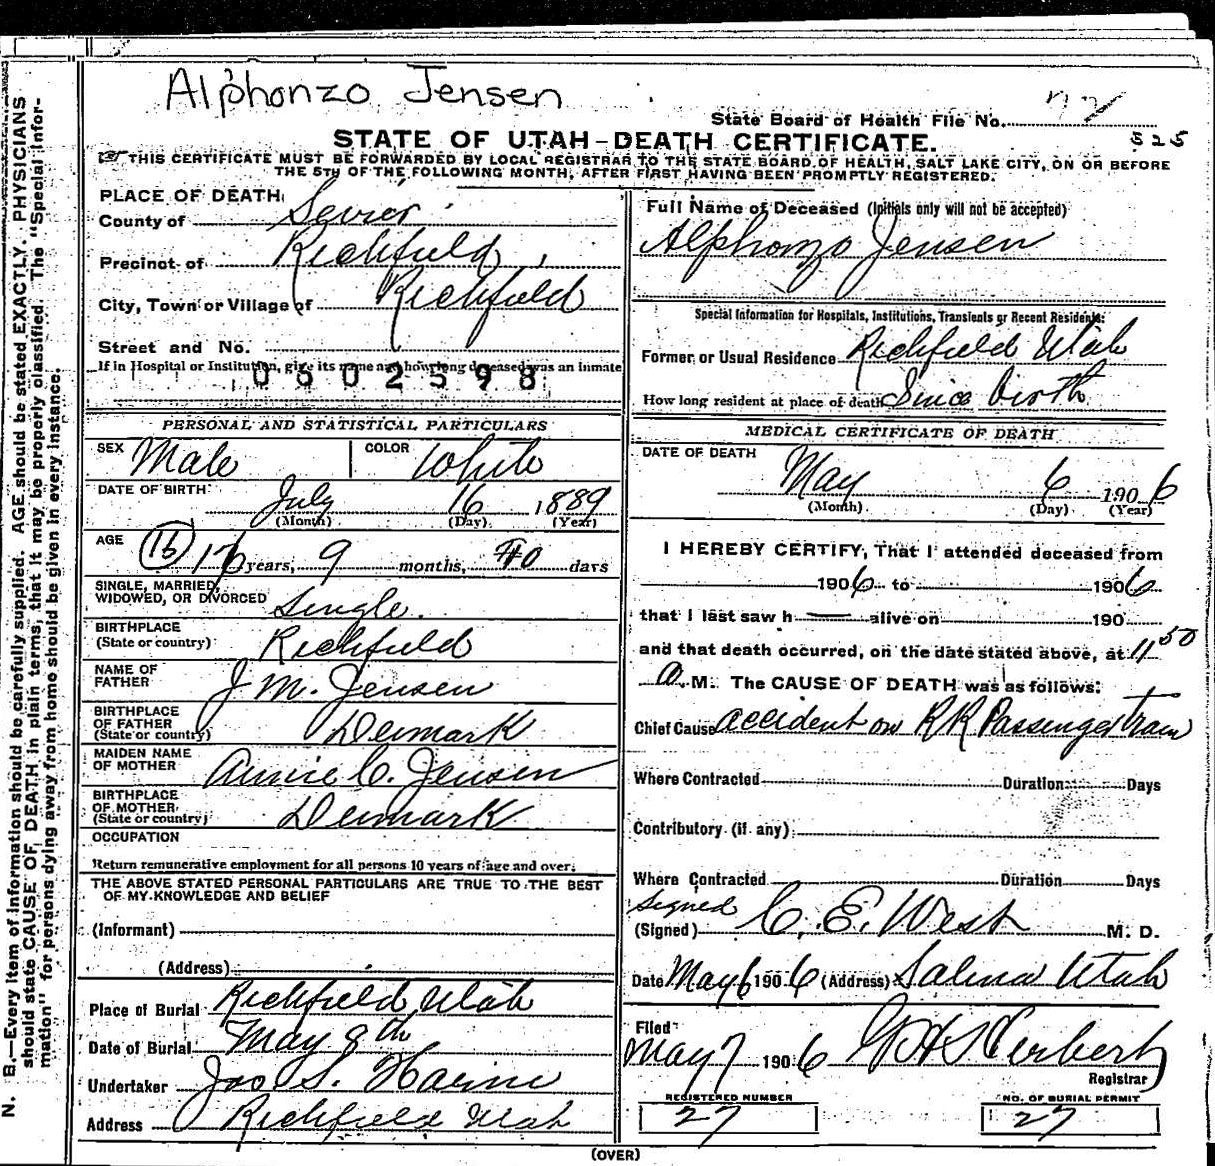 Alphonzo Jensen
State Board of Health File No.
STATE OF UTAH-DEATH CERTIFICATE.
525
THIS CERTIFICATE MUST BE FORWARDED BY LOCAL REGISTRAR TO THE STATE BOARD OF HEALTH, SALT LAKE CITY, ON OR BEFORE
THE 5TH OF THE FOLLOWING MONTH, AFTER FIRST HAVING BEEN PROMPTLY REGISTERED.
PLACE OF DEATH
County of Sevier
Precinct of Richfield
City, Town or Village of Richfield
Street and No.
If in Hospital or Institution, give its name and how long deceased was an inmate
0502598
PERSONAL AND STATISTICAL PARTICULARS
SEX Male COLOR White
DATE OF BIRTH July 16 1889
(Month) (Day) (Year)
AGE 16 years, 9 months, days
SINGLE, MARRIED, WIDOWED, OR DIVORCED Single
BIRTHPLACE (State or country) Richfield
NAME OF FATHER J M. Jensen
BIRTHPLACE OF FATHER (State or country) Denmark
MAIDEN NAME OF MOTHER Annie C. Jensen
BIRTHPLACE OF MOTHER (State or country) Denmark
OCCUPATION
Return remunerative employment for all persons 10 years of age and over.
THE ABOVE STATED PERSONAL PARTICULARS ARE TRUE TO THE BEST
OF MY KNOWLEDGE AND BELIEF
(Informant)
(Address)
Place of Burial Richfield Utah
Date of Burial May 9th
Undertaker Jas S.
Address Richfield Utah
Full Name of Deceased (Initials only will not be accepted)
Alphonzo Jensen
Special Information for Hospitals, Institutions, Transients or Recent Residents:
Former or Usual Residence Richfield Utah
How long resident at place of death Since birth
MEDICAL CERTIFICATE OF DEATH
DATE OF DEATH
May 6 1906
(Month) (Day) (Year)
I HEREBY CERTIFY, That I attended deceased from
1906 to 1906
that I last saw h alive on 190
and that death occurred, on the date stated above, at 11 50
a. M. The CAUSE OF DEATH was as follows:
Chief Cause accident on RR Passenger train
Where Contracted Duration Days
Contributory (if any)
Where Contracted Duration Days
Signed
(Signed) C. E. West M. D.
Date May 6 1906 (Address) Salina Utah
Filed
May 7 1906
Registrar
REGISTERED NUMBER
27
NO. OF BURIAL PERMIT
27
(OVER)
N. B.—Every item of information should be carefully supplied. AGE should be stated EXACTLY. PHYSICIANS
should state CAUSE OF DEATH in plain terms, that it may be properly classified. The "Special Infor-
mation" for persons dying away from home should be given in every instance.